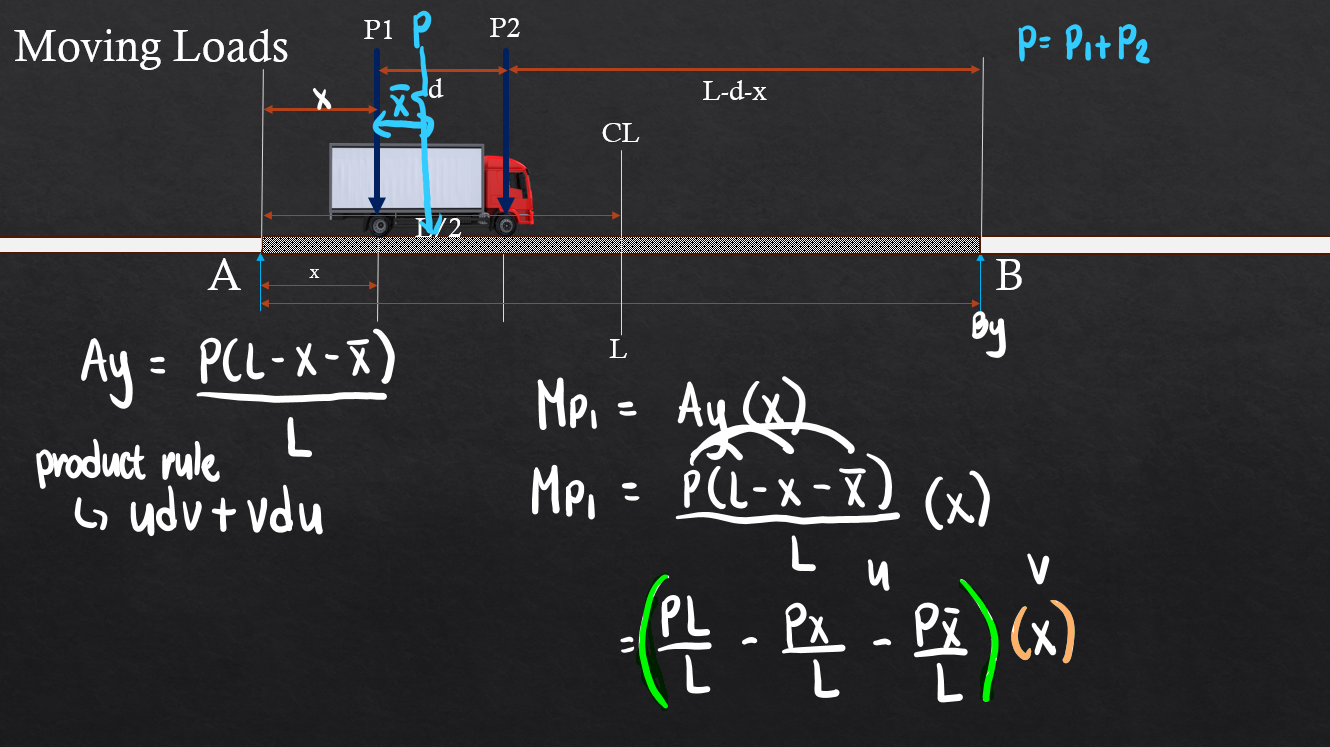 Moving Loads
P1
P
P2
P = P₁ + P₂
x
x̄
d
L-d-x
CL
L/2
A
x
B
By
L
Ay = P(L - x - x̄) / L
Mp₁ = Ay (x)
product rule
↳ udv + vdu
Mp₁ = P(L - x - x̄) / L (x)
u
v
= (PL/L - Px/L - Px̄/L) (x)